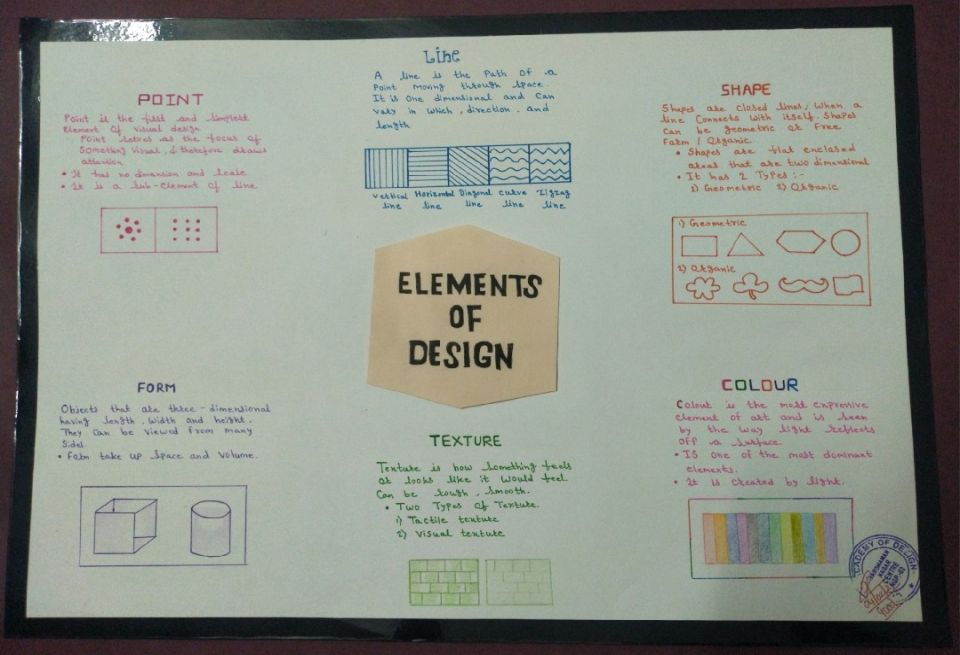 POINT
Point is the first and simplest
element of visual design
Point serves as the focus of
something visual, & therefore draws
attention
• It has no dimension and scale
• It is a sub-element of line.
Line
A line is the Path of a
Point moving through space.
It is one dimensional and can
vary in width, direction, and
length
vertical line
Horizontal line
Diagonal line
curve line
Zigzag line
SHAPE
Shapes are closed lines, when a
line connects with itself. Shapes
can be geometric or Free
Form / Organic.
• Shapes are flat enclosed
areas that are two dimensional
• It has 2 Types :-
1) Geometric 2) Organic
1) Geometric
2) Organic
ELEMENTS
OF
DESIGN
FORM
Objects that are three-dimensional
having length, width and height.
They can be viewed from many
sides
• Form take up space and volume.
TEXTURE
Texture is how something feels
or looks like it would feel
Can be rough, smooth.
• Two Types of Texture.
1) Tactile texture
2) Visual texture
COLOUR
Colour is the most expressive
element of art and is seen
by the way light reflects
off a surface.
• IS one of the most dominant
elements.
• It is created by light.
ACADEMY OF DESIGN
CENTRE